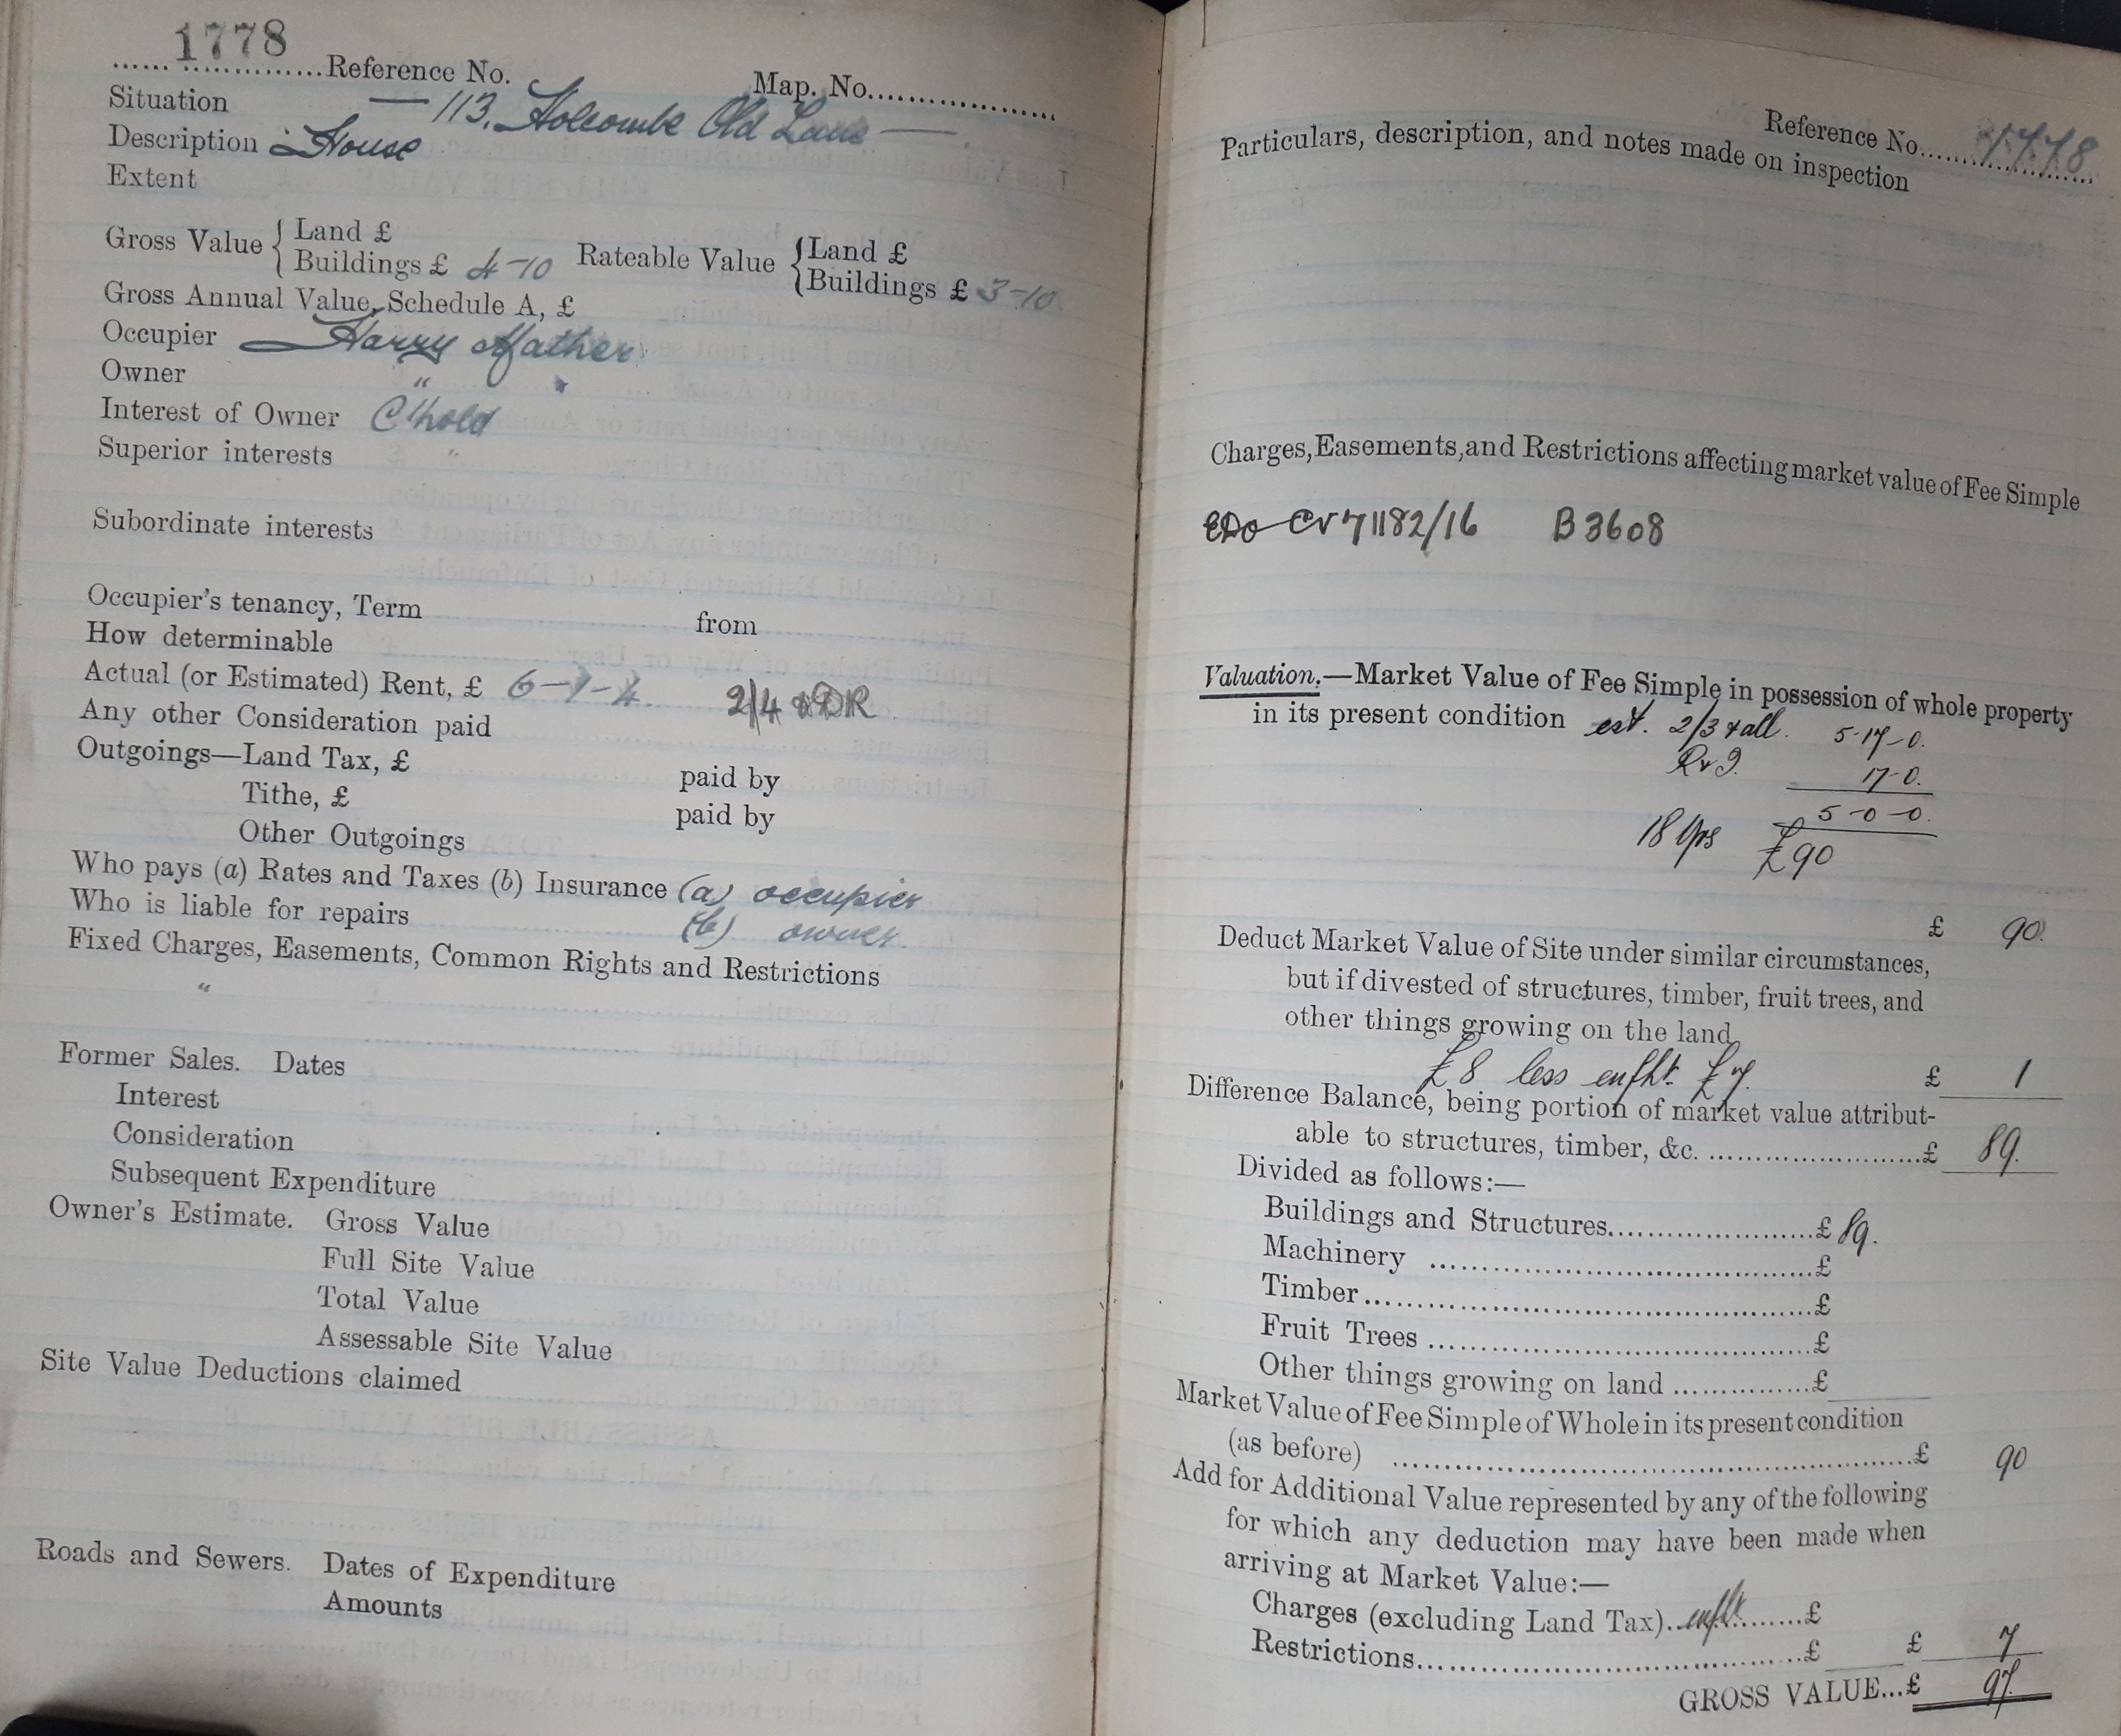 1778
...... ..............Reference No. Map. No.....................
Situation — 113, Holcombe Old Lane —
Description House
Extent
Gross Value { Land £ Rateable Value { Land £
Buildings £ 4-10 Buildings £ 3-10
Gross Annual Value, Schedule A, £
Occupier Harry Mather
Owner " "
Interest of Owner C'hold
Superior interests "
Subordinate interests
Occupier's tenancy, Term from
How determinable
Actual (or Estimated) Rent, £ 6-1-4. 2/4
Any other Consideration paid
Outgoings—Land Tax, £ paid by
Tithe, £ paid by
Other Outgoings
Who pays (a) Rates and Taxes (b) Insurance (a) occupier
Who is liable for repairs (b) owner.
Fixed Charges, Easements, Common Rights and Restrictions
"
Former Sales. Dates
Interest
Consideration
Subsequent Expenditure
Owner's Estimate. Gross Value
Full Site Value
Total Value
Assessable Site Value
Site Value Deductions claimed
Roads and Sewers. Dates of Expenditure
Amounts
Reference No. 1778
Particulars, description, and notes made on inspection
Charges, Easements, and Restrictions affecting market value of Fee Simple
CV 71182/16 B3608
Valuation.—Market Value of Fee Simple in possession of whole property
in its present condition est. 2/3 + all. 5-17-0.
R & I. 17-0.
5-0-0.
18 Yps £90
£ 90.
Deduct Market Value of Site under similar circumstances,
but if divested of structures, timber, fruit trees, and
other things growing on the land
£8 less enfht. £7. £ 1
Difference Balance, being portion of market value attribut-
able to structures, timber, &c. ........................£ 89.
Divided as follows:—
Buildings and Structures.......................£ 89.
Machinery ..........................................£
Timber..................................................£
Fruit Trees ..........................................£
Other things growing on land ...............£
Market Value of Fee Simple of Whole in its present condition
(as before) .......................................................£ 90
Add for Additional Value represented by any of the following
for which any deduction may have been made when
arriving at Market Value:—
Charges (excluding Land Tax)..enfht.......£
Restrictions...........................................£ £ 7
GROSS VALUE...£ 97